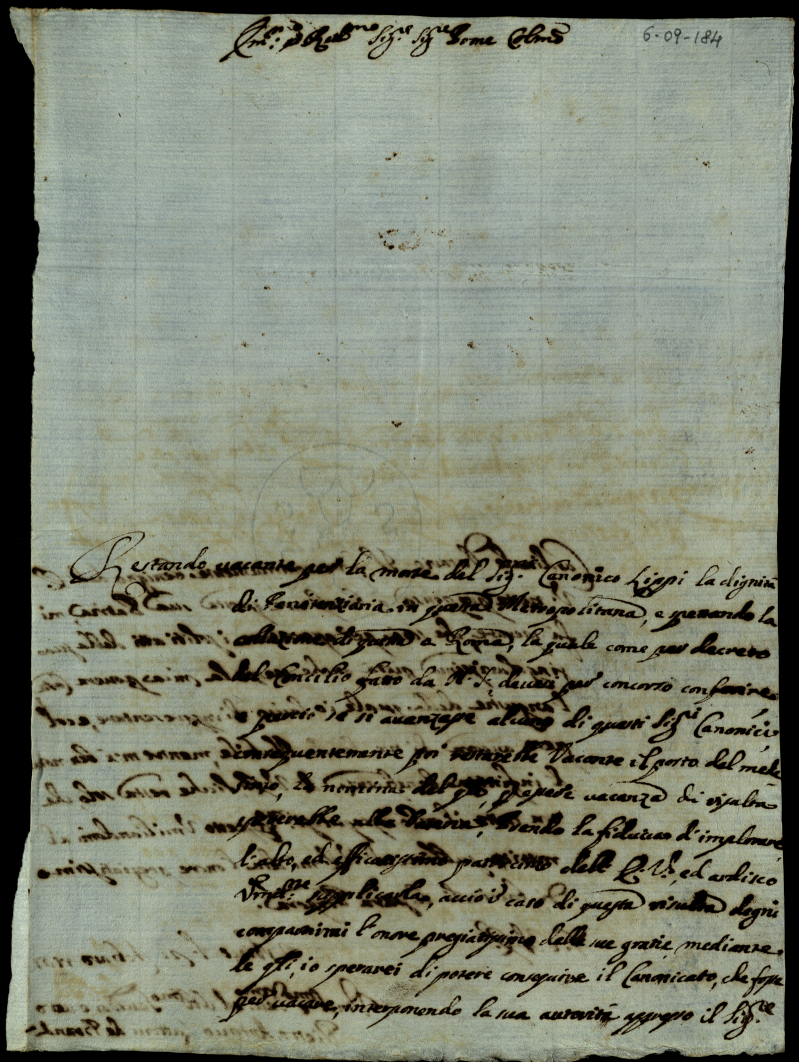 Ill.mo e Reu.mo Sig.re Sig.re Prone Col.mo
6-09-184
Restando vacante per la morte del Sig.r Canonico Lippi la dignità
di Penitenziaria in questa Metropolitana, e spettando la
di questa a Roma, la quale come per decreto
del Concilio fatto da deuesi per concorso conferire
e perciò se si auanzasse alcuno di questi Sig.ri Canonici
consequentemente poi restarebbe Vacante il posto del mede
simo, la nomina del p.e essere vacanza di risulta
spetterebbe alla Dataria; Prendo la fiducia di implorare
l'alto, ed efficacissimo patrocinio dell' ed ardisco
supplicarla, acciò in caso di questa risulta degni
compartirmi l'onore pregiatissimo delle sue gratie mediante
le qli, io sperarei di potere conseguire il Canonicato, che fosse
per vacare, interponendo la sua autorità appresso il Sig.re